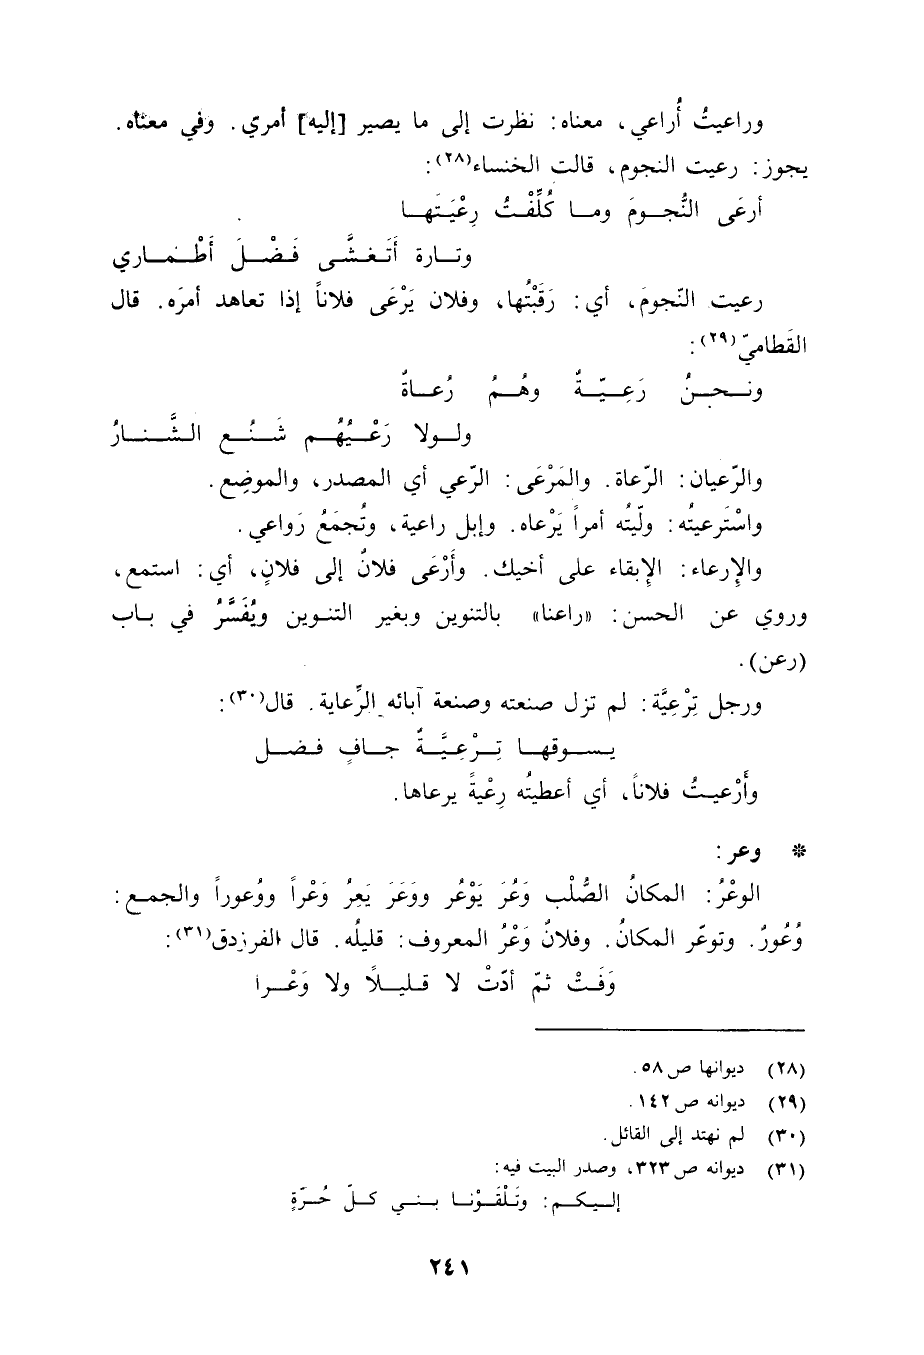 وراعيتُ أُراعي، معناه: نظرت إلى ما يصير [إليه] أمري. وفي معناه.
يجوز: رعيت النجوم، قالت الخنساء(٢٨):
أرعَى النُّجـومَ ومـا كُلِّفْـتُ رِعْيَتَهـا
وتـارة أَتَغـشَّى فَـضْـلَ أطْـمـاري
رعيت النّجومَ، أي: رَقَبْتُها، وفلان يَرْعَى فلاناً إذا تعاهد أمرَه. قال
القَطاميّ(٢٩):
ونـحـنُ رَعِـيّـةٌ وهُـمُ رُعـاةٌ
ولـولا رَعْـيُهُـم شَـنُـع الـشَّـنـارُ
والرّعيان: الرّعاة. والمَرْعَى: الرّعي أي المصدر، والموضِع.
واسْتَرعيتُه: ولّيتُه أمراً يَرْعاه. وإبل راعية، وتُجمَعُ رَواعي.
والإرعاء: الإبقاء على أخيك. وأَرْعَى فلانٌ إلى فلانٍ، أي: استمع،
وروي عن الحسن: «راعنا» بالتنوين وبغير التنـوين ويُفَسَّرُ في بـاب
(رعن).
ورجل تِرْعِيَّة: لم تزل صنعته وصنعة آبائه الرِّعاية. قال(٣٠):
يـسـوقهـا تِـرْعِـيَّـةٌ جـافٍ فـضـل
وأَرْعيـتُ فلاناً، أي أعطيتُه رِعْيةً يرعاها.
* وعر:
الوعْرُ: المكانُ الصُّلْب وَعُرَ يَوْعُر ووَعَرَ يَعِرُ وَعْراً ووُعوراً والجمـع:
وُعُورٌ. وتوعّر المكانُ. وفلانٌ وَعْرُ المعروف: قليلُه. قال الفرزدق(٣١):
وَفَـتْ ثمّ أدّتْ لا قـليـلاً ولا وَعْـرا
(٢٨) ديوانها ص٥٨.
(٢٩) ديوانه ص١٤٢.
(٣٠) لم نهتد إلى القائل.
(٣١) ديوانه ص٣٢٣، وصدر البيت فيه:
إلـيـكـم: وتَلْقَـوْنـا بـنـي كـلّ حُـرّةٍ
٢٤١